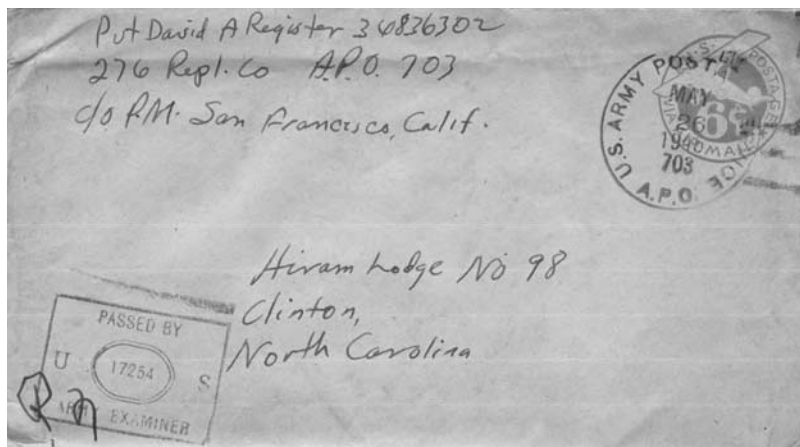 Pvt David A Register 34836302
276 Repl. Co A.P.O. 703
c/o P.M. San Francisco, Calif.
U.S. ARMY POSTAL
MAY
26
703
A.P.O.
U.S. POSTAGE
6¢
VIA AIRMAIL
Hiram Lodge No 98
Clinton,
North Carolina
PASSED BY
U 17254 S
ARMY EXAMINER